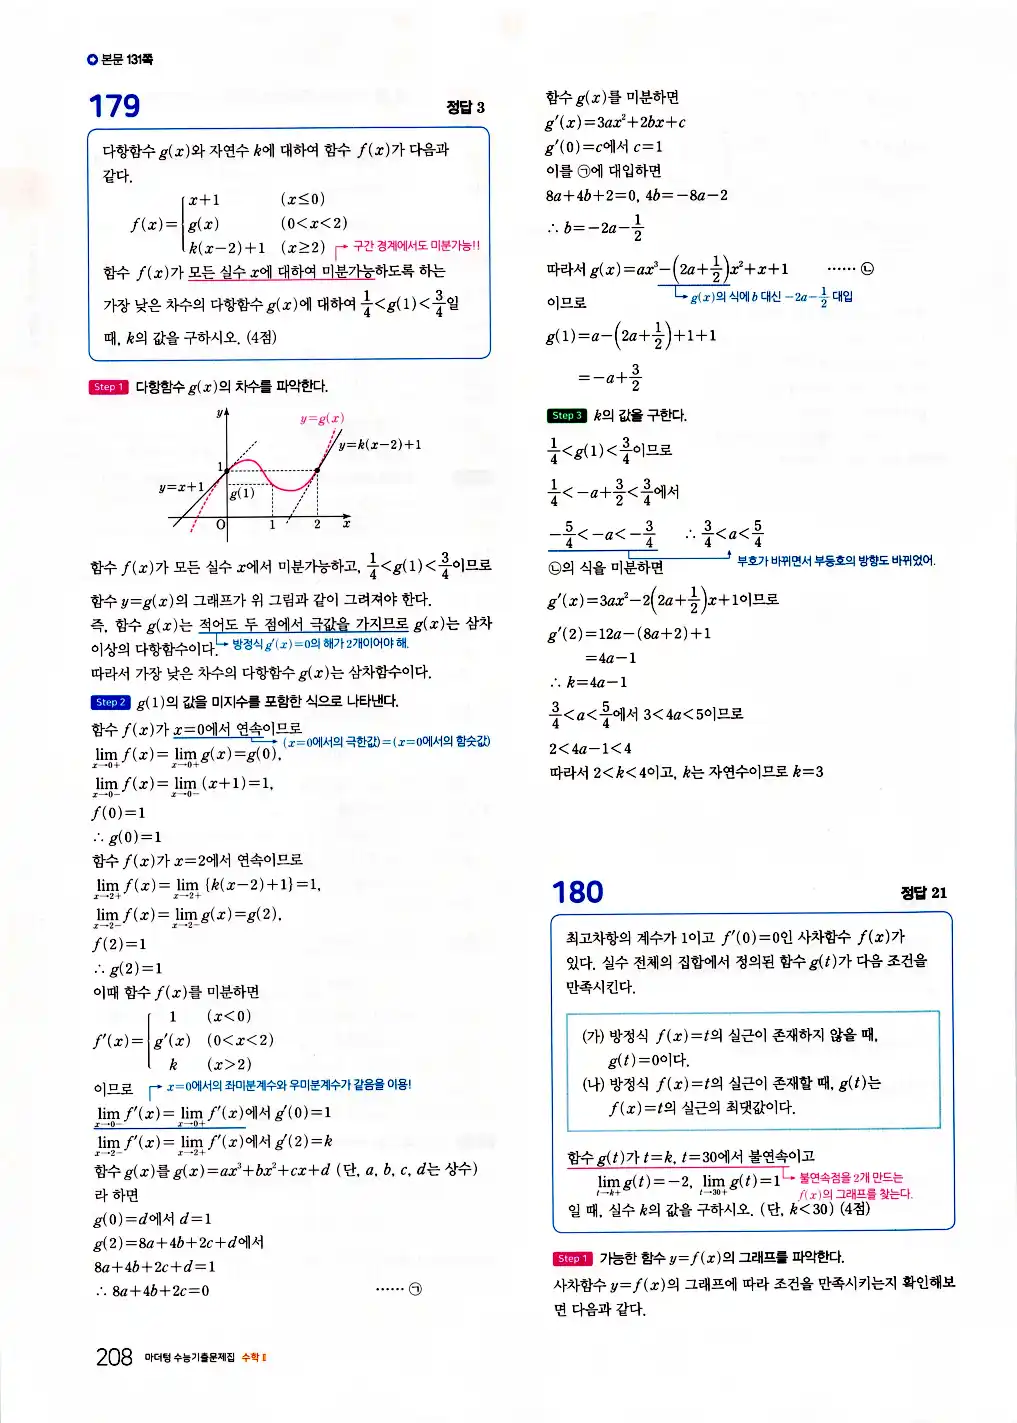 본문 131쪽
179
정답 3
다항함수 g(x)와 자연수 k에 대하여 함수 f(x)가 다음과
같다.
x+1 (x≤0)
f(x)= g(x) (0<x<2)
k(x−2)+1 (x≥2) 구간 경계에서도 미분가능!!
함수 f(x)가 모든 실수 x에 대하여 미분가능하도록 하는
가장 낮은 차수의 다항함수 g(x)에 대하여 1/4<g(1)<3/4일
때, k의 값을 구하시오. (4점)
Step 1 다항함수 g(x)의 차수를 파악한다.
y
y=g(x)
y=k(x−2)+1
1
y=x+1
g(1)
O 1 2 x
함수 f(x)가 모든 실수 x에서 미분가능하고, 1/4<g(1)<3/4이므로
함수 y=g(x)의 그래프가 위 그림과 같이 그려져야 한다.
즉, 함수 g(x)는 적어도 두 점에서 극값을 가지므로 g(x)는 삼차
이상의 다항함수이다. 방정식 g′(x)=0의 해가 2개이어야 해.
따라서 가장 낮은 차수의 다항함수 g(x)는 삼차함수이다.
Step 2 g(1)의 값을 미지수를 포함한 식으로 나타낸다.
함수 f(x)가 x=0에서 연속이므로
(x=0에서의 극한값)=(x=0에서의 함숫값)
lim x→0+ f(x)= lim x→0+ g(x)=g(0),
lim x→0− f(x)= lim x→0− (x+1)=1,
f(0)=1
∴ g(0)=1
함수 f(x)가 x=2에서 연속이므로
lim x→2+ f(x)= lim x→2+ {k(x−2)+1}=1,
lim x→2− f(x)= lim x→2− g(x)=g(2),
f(2)=1
∴ g(2)=1
이때 함수 f(x)를 미분하면
1 (x<0)
f′(x)= g′(x) (0<x<2)
k (x>2)
이므로 x=0에서의 좌미분계수와 우미분계수가 같음을 이용!
lim x→0− f′(x)= lim x→0+ f′(x)에서 g′(0)=1
lim x→2− f′(x)= lim x→2+ f′(x)에서 g′(2)=k
함수 g(x)를 g(x)=ax³+bx²+cx+d (단, a, b, c, d는 상수)
라 하면
g(0)=d에서 d=1
g(2)=8a+4b+2c+d에서
8a+4b+2c+d=1
∴ 8a+4b+2c=0 …… ㉠
함수 g(x)를 미분하면
g′(x)=3ax²+2bx+c
g′(0)=c에서 c=1
이를 ㉠에 대입하면
8a+4b+2=0, 4b=−8a−2
∴ b=−2a−1/2
따라서 g(x)=ax³−(2a+1/2)x²+x+1 …… ㉡
이므로 g(x)의 식에 b 대신 −2a−1/2 대입
g(1)=a−(2a+1/2)+1+1
=−a+3/2
Step 3 k의 값을 구한다.
1/4<g(1)<3/4이므로
1/4<−a+3/2<3/4에서
−5/4<−a<−3/4 ∴ 3/4<a<5/4
부호가 바뀌면서 부등호의 방향도 바뀌었어.
㉡의 식을 미분하면
g′(x)=3ax²−2(2a+1/2)x+1이므로
g′(2)=12a−(8a+2)+1
=4a−1
∴ k=4a−1
3/4<a<5/4에서 3<4a<5이므로
2<4a−1<4
따라서 2<k<4이고, k는 자연수이므로 k=3
180
정답 21
최고차항의 계수가 1이고 f′(0)=0인 사차함수 f(x)가
있다. 실수 전체의 집합에서 정의된 함수 g(t)가 다음 조건을
만족시킨다.
(가) 방정식 f(x)=t의 실근이 존재하지 않을 때,
g(t)=0이다.
(나) 방정식 f(x)=t의 실근이 존재할 때, g(t)는
f(x)=t의 실근의 최댓값이다.
함수 g(t)가 t=k, t=30에서 불연속이고
lim t→k+ g(t)=−2, lim t→30+ g(t)=1 불연속점을 2개 만드는
f(x)의 그래프를 찾는다.
일 때, 실수 k의 값을 구하시오. (단, k<30) (4점)
Step 1 가능한 함수 y=f(x)의 그래프를 파악한다.
사차함수 y=f(x)의 그래프에 따라 조건을 만족시키는지 확인해보
면 다음과 같다.
208 마더텅 수능기출문제집 수학 Ⅱ